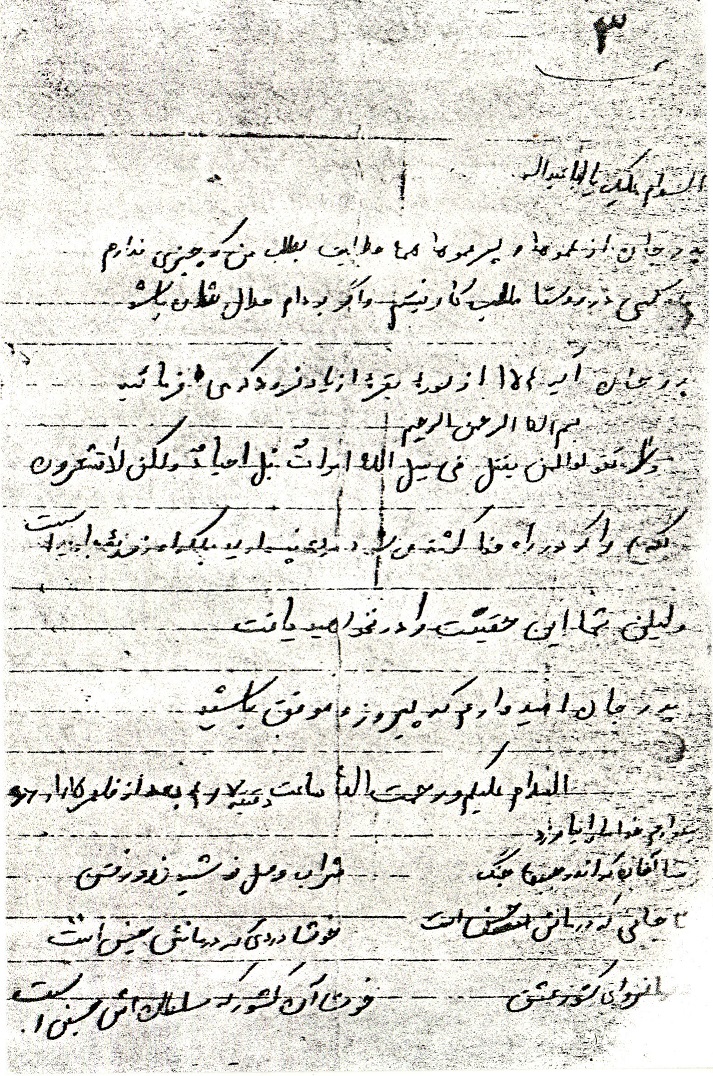 ۳
السلام علیک یا اباعبدالله
پدر جان از عموها و پسر عموها همه حلالیت بطلب من که چیزی ندارم
کسی در روستا طلب کار نیستم و اگر بودم حلال شان باشد
پدر جان آیه ۱۵۴ از سوره بقره از یاد نرود که می فرمائید
بسم الله الرحمن الرحیم
ولا تقولوا لمن یقتل فی سبیل الله اموات بل احیاء ولکن لا تشعرون
و اگر در راه خدا کشته می شود مرده نپندارید بلکه او زنده ابدی است
ولیکن شما این حقیقت را در نخواهید یافت
پدر جان امیدوارم که پیروز و موفق باشید
السلام علیکم و رحمت الله ساعت دقیقه بعد از ظهر
خدا را یاور
آنان که اندر جنگ شراب وصل نوشیدند و رفتند
جانی که درمانش حسین است خوشا دردی که درمانش حسین است
کشور عشق خوشا آن کشور که سلطانش حسین است